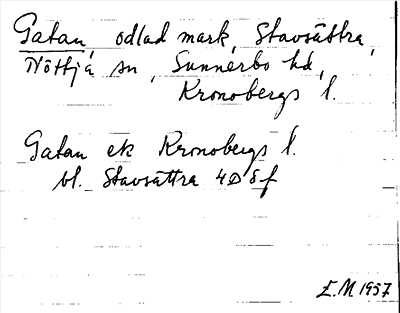 Gatan, odlad mark, Stavsättra,
Nöttja sn, Sunnerbo hd,
Kronobergs l.
Gatan ek Kronobergs l.
bl. Stavsättra 4D 8f
E.M 1957